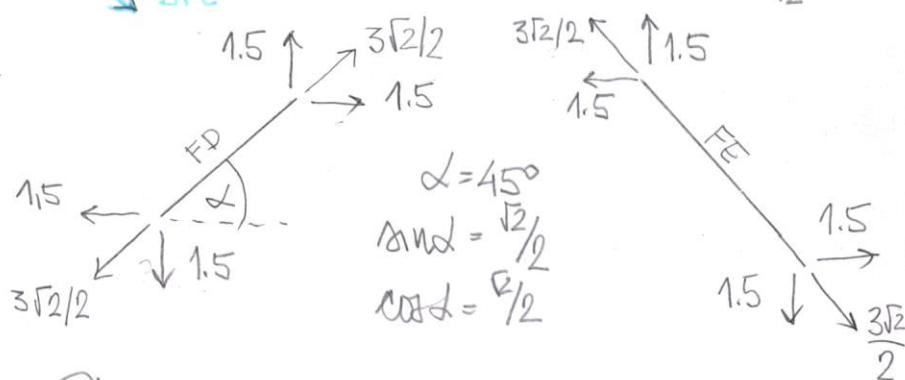 1.5
3√2/2
1.5
FD
α
1,5
1.5
3√2/2
α=45°
sinα = √2/2
cosα = √2/2
3√2/2
1.5
1.5
FE
1.5
1.5
3√2/2